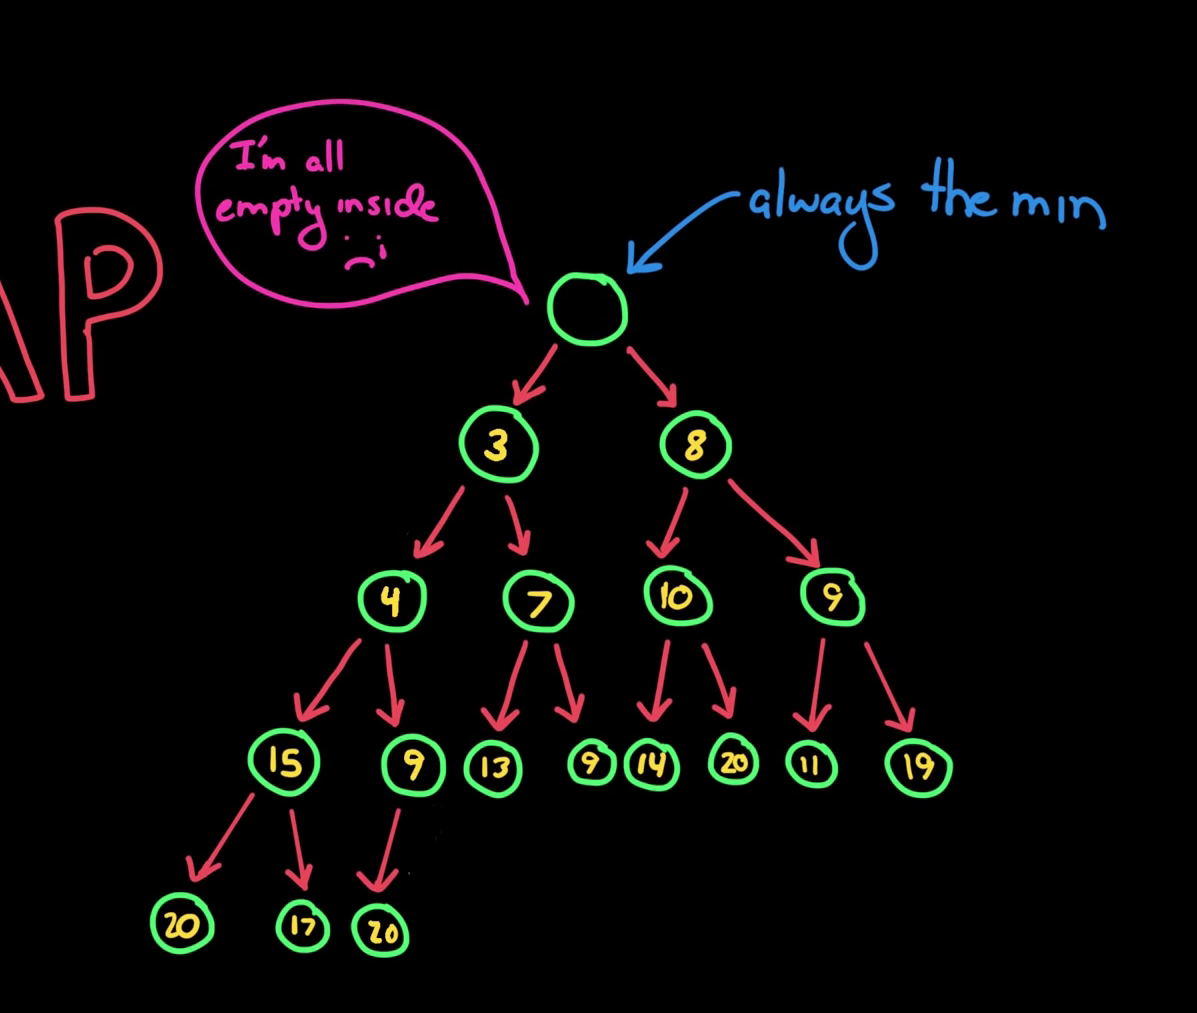 I'm all
empty inside
:(
always the min
AP
3
8
4
7
10
9
15
9
13
9
14
20
11
19
20
17
20